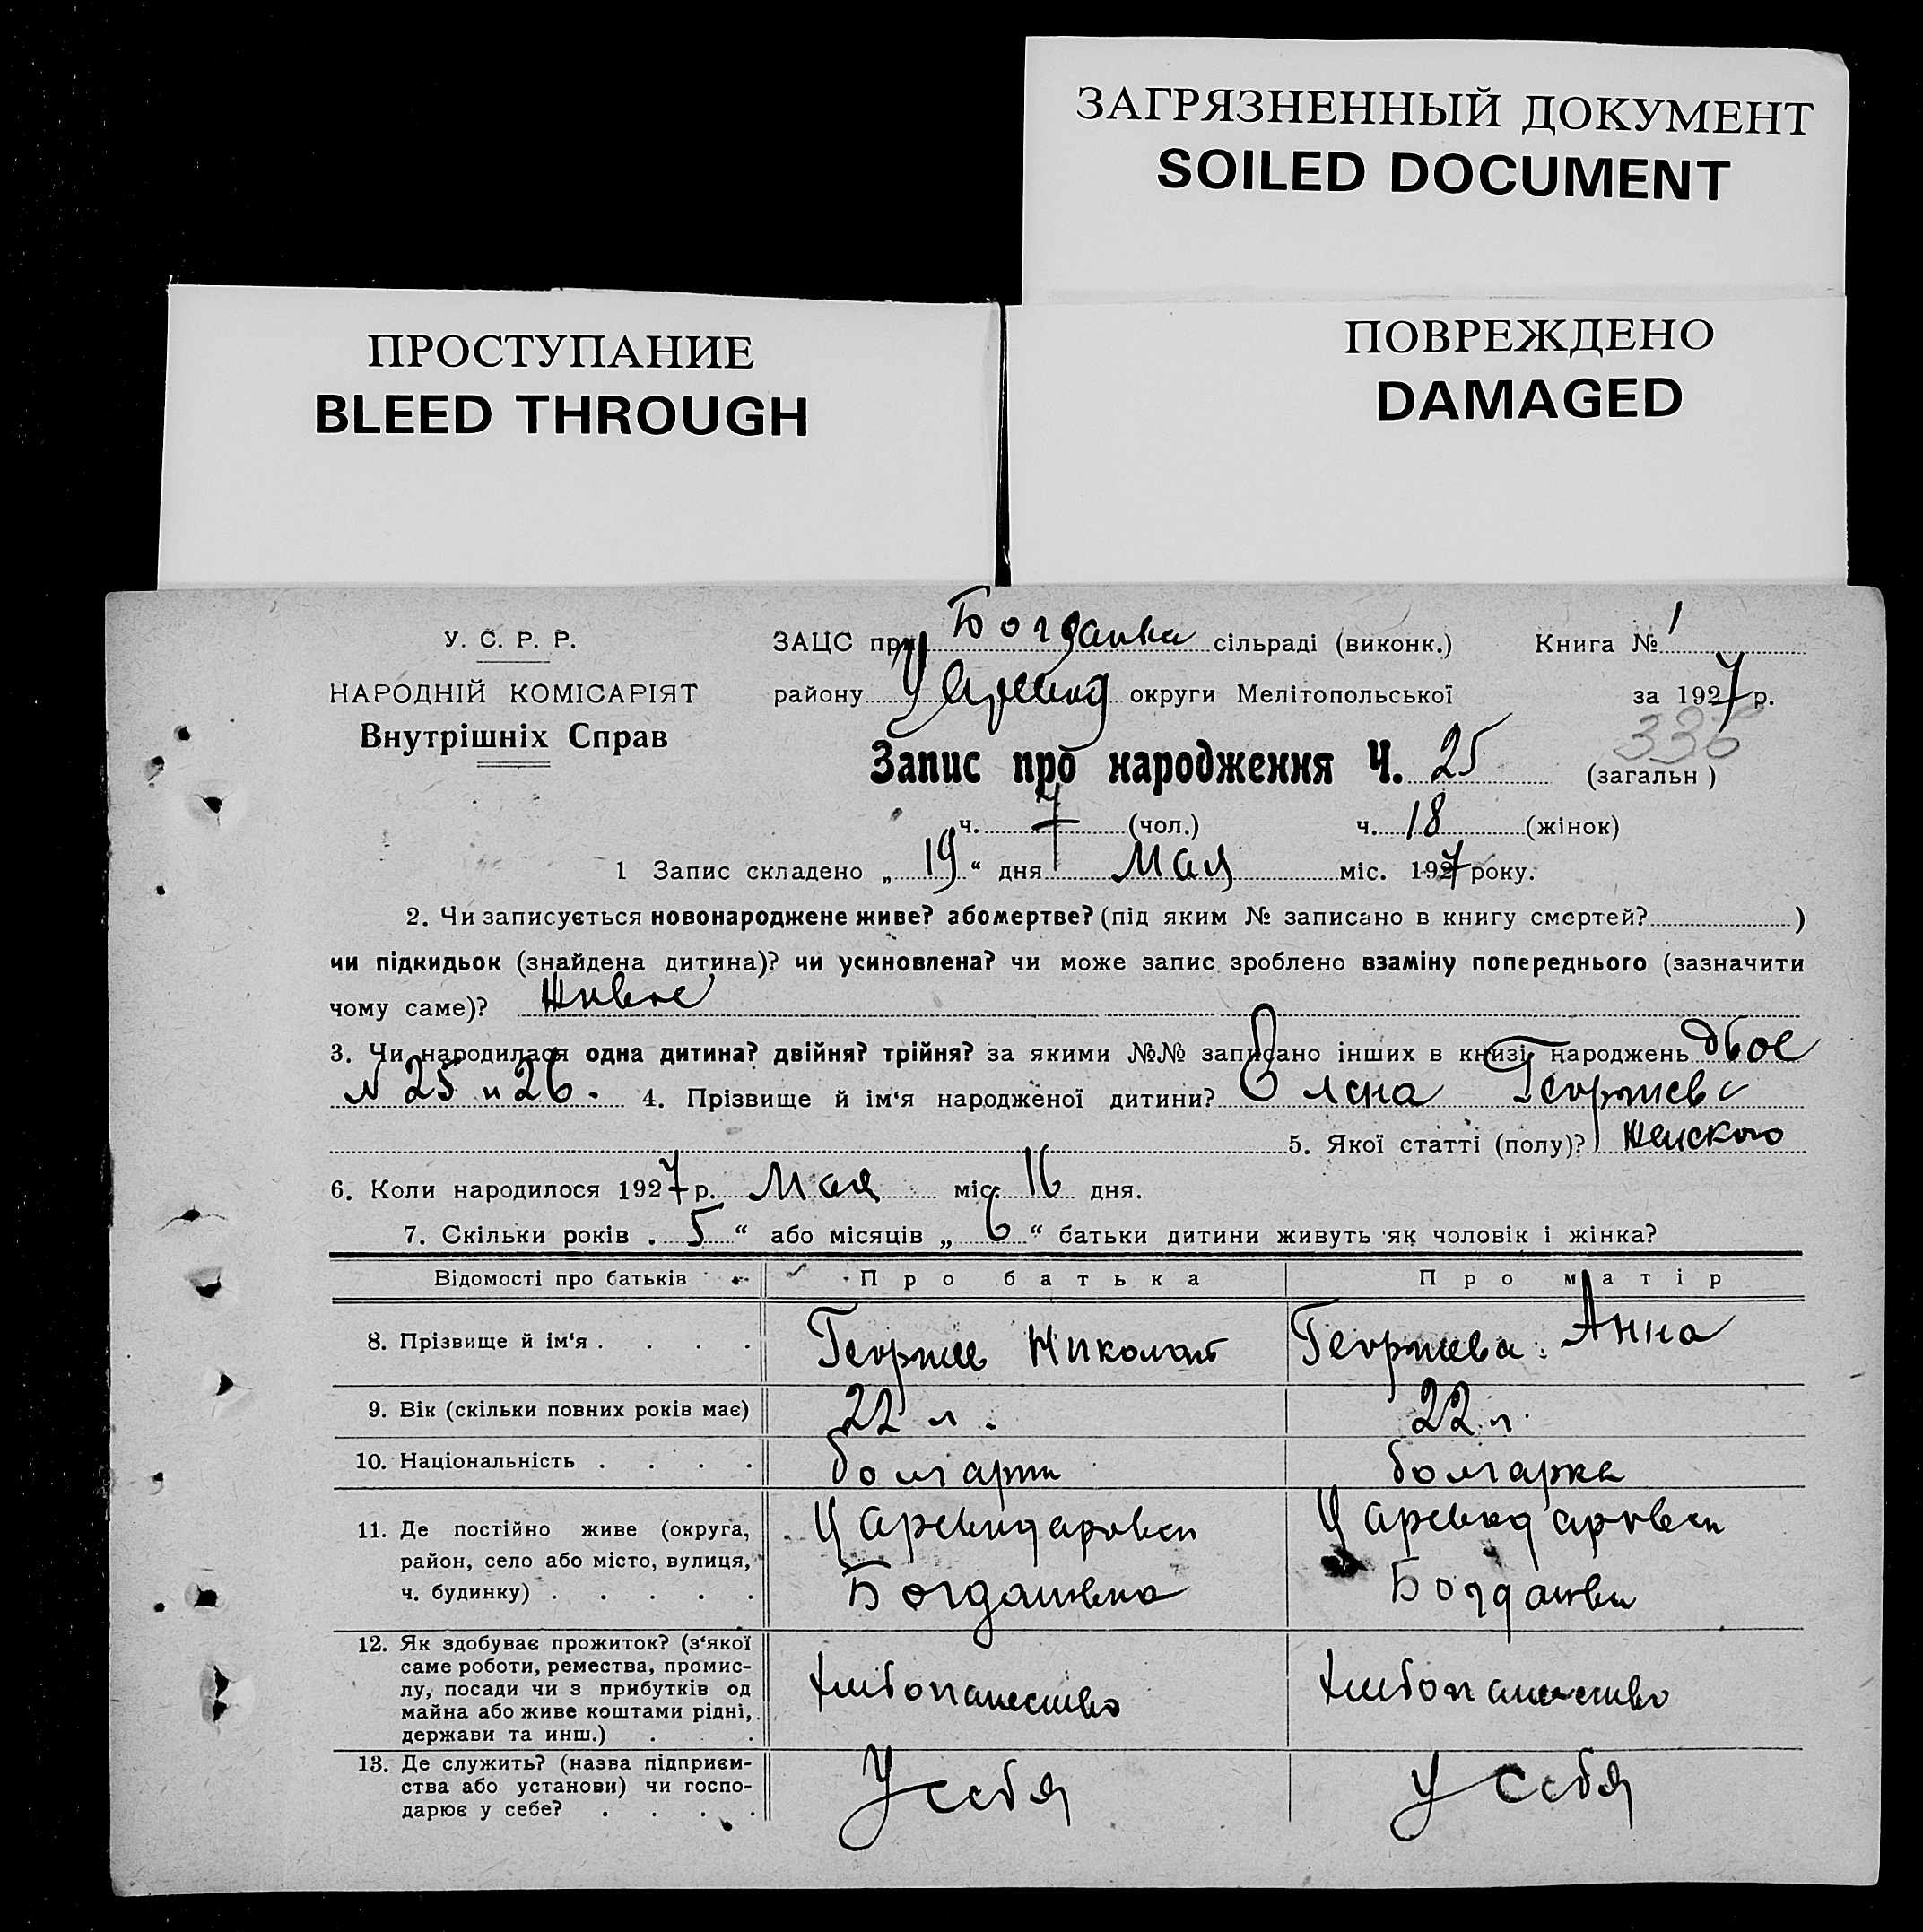 ЗАГРЯЗНЕННЫЙ ДОКУМЕНТ
SOILED DOCUMENT
ПРОСТУПАНИЕ
BLEED THROUGH
ПОВРЕЖДЕНО
DAMAGED
У. С. Р. Р.
НАРОДНІЙ КОМІСАРІЯТ
Внутрішніх Справ
ЗАЦС при Богдановка сільраді (виконк.) Книга № 1
району округи Мелітопольської за 1927 р.
336
Запис про народження Ч. 25 (загальн)
ч. 7 (чол.) ч. 18 (жінок)
1 Запис складено „ 19 “ дня Мая міс. 1927 року.
2. Чи записується новонароджене живе? або мертве? (під яким № записано в книгу смертей? )
чи підкидьок (знайдена дитина)? чи усиновлена? чи може запис зроблено взаміну попереднього (зазначити
чому саме)? Живое
3. Чи народилася одна дитина? двійня? трійня? за якими №№ записано інших в книзі народжень двое
№ 25 и 26. 4. Прізвище й ім‘я народженої дитини? Олена Георгиева
5. Якої статті (полу)? женского
6. Коли народилося 1927 р. Мая міс. 16 дня.
7. Скільки років „ 5 “ або місяців „ 6 “ батьки дитини живуть як чоловік і жінка?
Відомості про батьків Про батька Про матір
8. Прізвище й ім‘я . . . . Георгиев Николай Георгиева Анна
9. Вік (скільки повних років має) 22 л. 22 л.
10. Національність . . . . болгарин болгарка
11. Де постійно живе (округа,
район, село або місто, вулиця,
ч. будинку) . . . . .
Царевидаровки Царевидаровки
Богдановка Богдановки
12. Як здобуває прожиток? (з‘якої
саме роботи, ремества, промис-
лу, посади чи з прибутків од
майна або живе коштами рідні,
держави та инш.) . .
хлебопашество хлебопашество
13. Де служить? (назва підприєм-
ства або установи) чи госпо-
дарює у себе? . . . .
У себя у себя